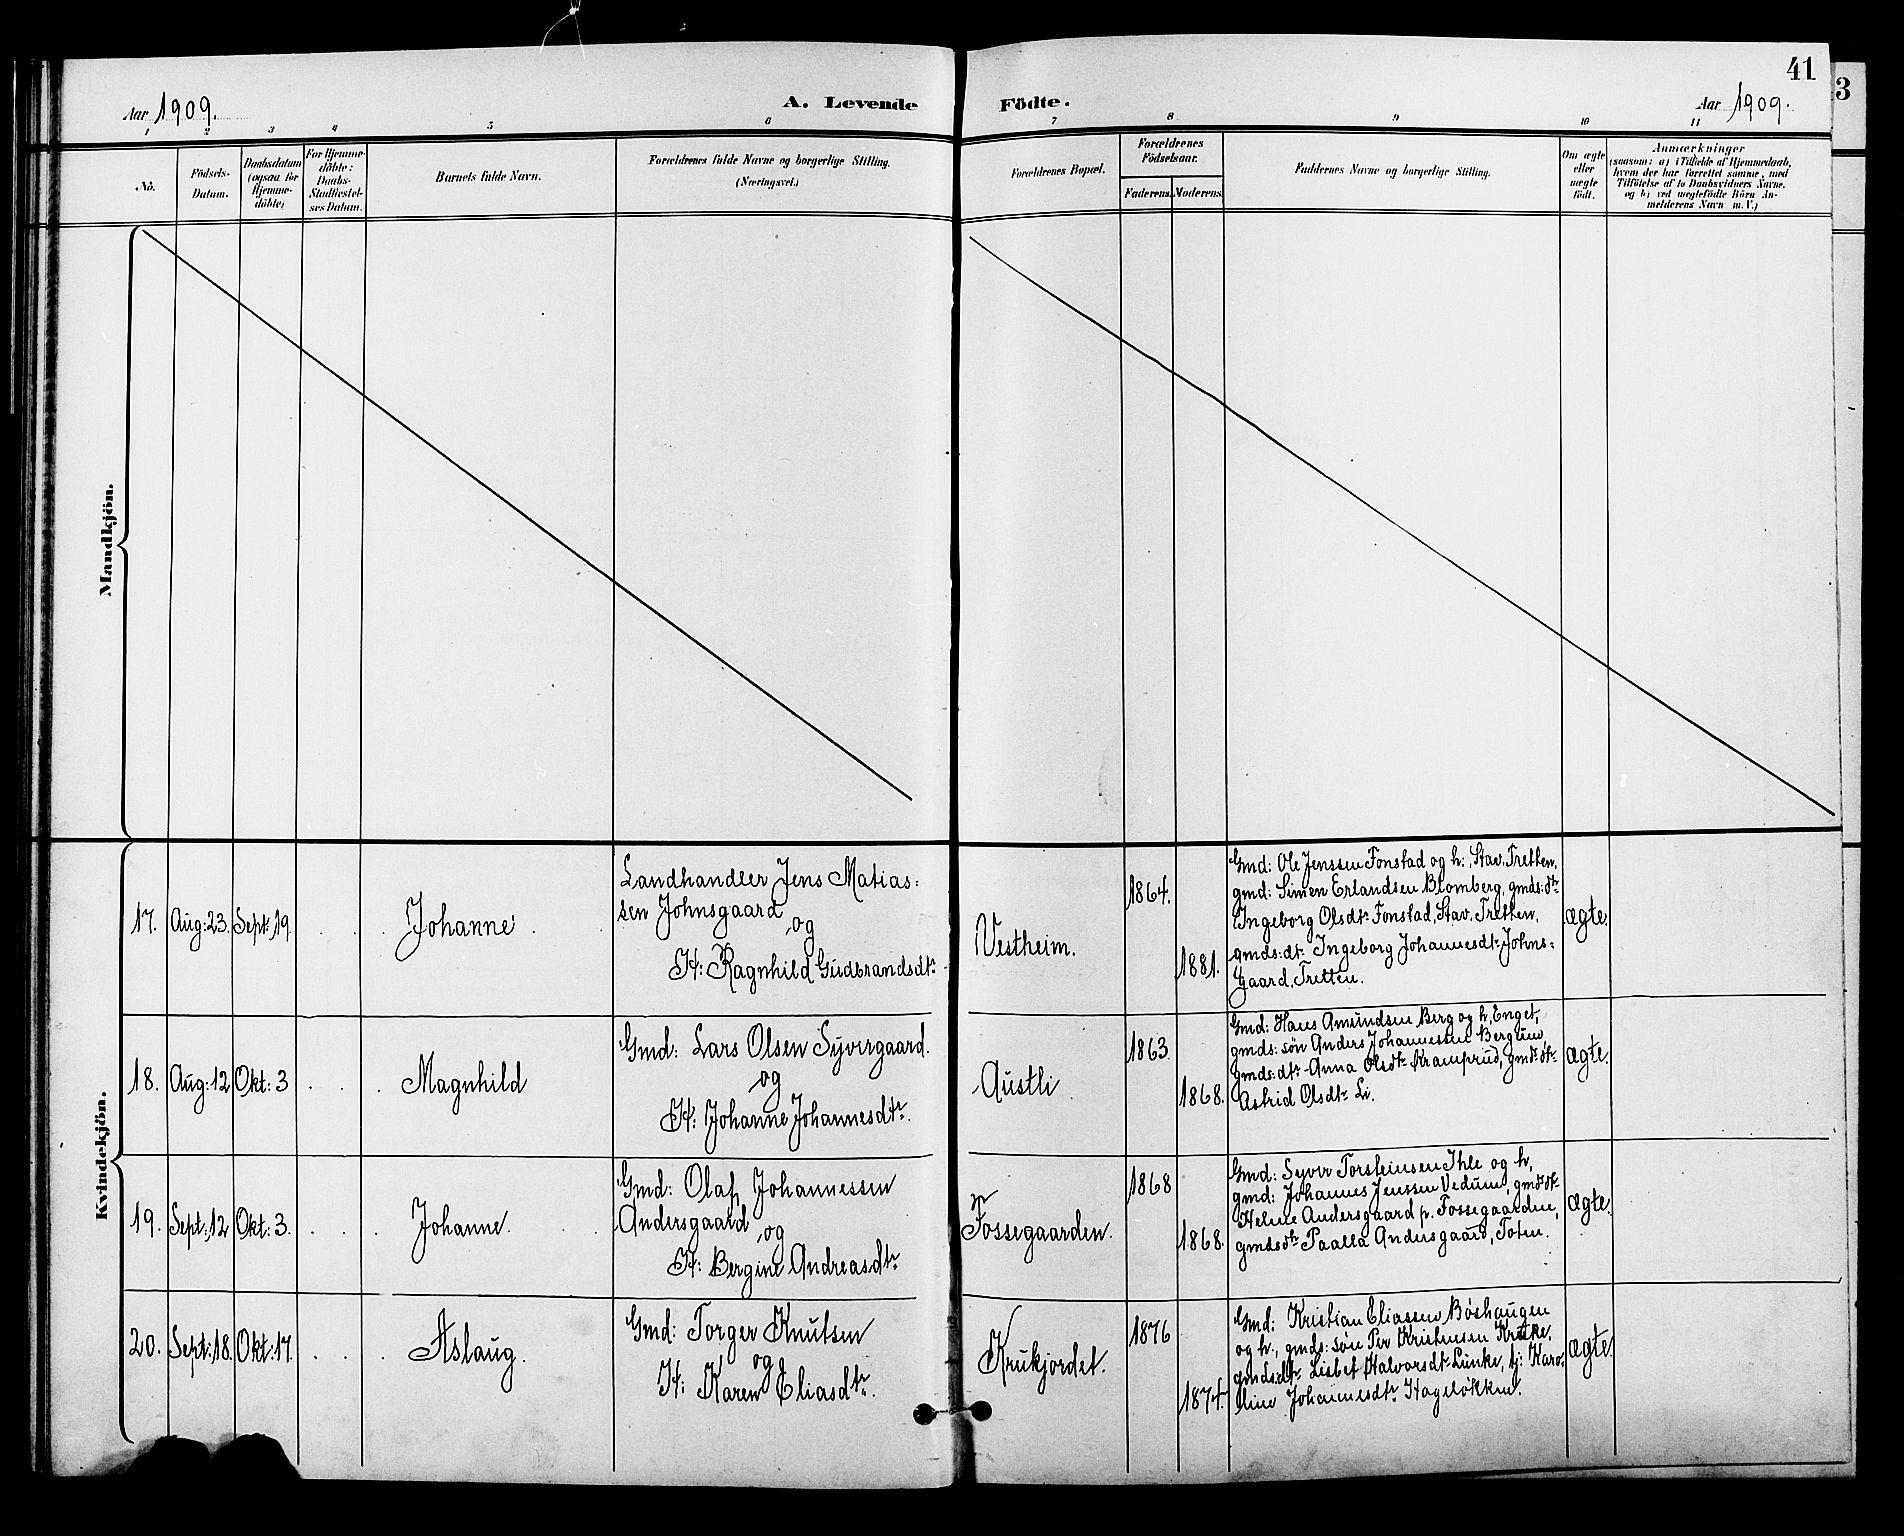 41
3
Aar 1909.
A. Levende Födte.
Aar 1909.
1 2 3 4 5 6 7 8 9 10 11
No.
Födsels-
Datum.
Daabsdatum
(ogsaa for
Hjemme-
döbte)
For Hjemme-
döbte:
Daabs-
Stadfæstel-
ses Datum.
Barnets fulde Navn.
Forældrenes fulde Navne og borgerlige Stilling.
(Næringsvei.)
Forældrenes Bopæl.
Forældrenes
Födselsaar.
Faderens. Moderens.
Faddernes Navne og borgerlige Stilling.
Om ægte
eller
uægte
födt.
Anmærkninger
(saasom: a) i Tilfælde af Hjemmedaab,
hvem der har forrettet samme, med
Tilföielse af to Daabsvidners Navne,
og b) ved uegtefödte Börn An-
melderens Navn m. V.)
Mandkjön.
Kvindekjön.
17. Aug: 23. Sept: 19. Johanne
Landhandler Jens Matias:
sen Johnsgaard
og
H: Ragnhild Gudbrandsdtr
Vestheim.
1864.
1881.
Gmd: Ole Jenssen Fonstad og h:, Stav, Tretten,
gmd: Simen Erlandsen Blomberg, gmds: dtr
Ingeborg Olsdtr Fonstad, Stav, Tretten,
gmds: dtr Ingeborg Johannesdtr Johns:
gaard, Tretten.
ægte.
18. Aug: 12 Okt: 3 Magnhild
Gmd: Lars Olsen Syvergaard.
og
H: Johanne Johannesdtr.
Austli
1863
1868.
Gmd: Hans Amundsen Berg og h, Enget,
gmds: søn Anders Johannessen Berglund,
gmds: dtr Anna Olsdtr Kramprud, gmds dtr
Astrid Olsdtr Li.
ægte.
19. Sept: 12 Okt: 3. Johanne.
Gmd: Olaf Johannessen
Andersgaard
og
H: Bergine Andreasdtr
pr
Fossegaarden.
1868
1868.
Gmd: Syver Torsteinsen Ihle og h,
gmd: Johannes Jenssen Vedum, gmds dtr
Helene Andersgaard p. Fossegaarden,
gmds dtr Paalla Andersgaard, Toten.
ægte.
20. Sept: 18. Okt: 17. Aslaug.
Gmd: Torger Knutsen
og
H: Karen Eliasdtr.
Krukjordet.
1876
1874.
Gmd: Kristian Eliassen Bøshaugen
og h., gmds: søn Per Kristensen Kruke,
gmds: dtr Lisbet Halvorsdtr Lunke, tj: Karo:
line Johannesdtr Hageløkken.
ægte.